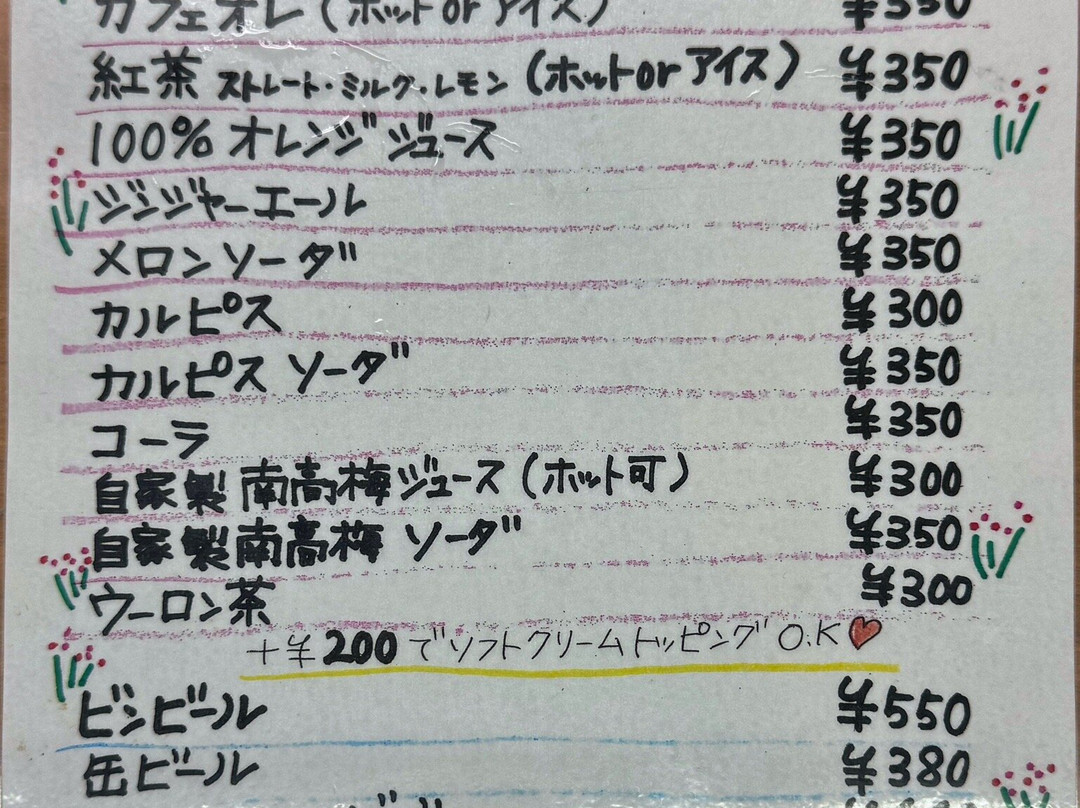 カフェオレ(ホットorアイス) ¥350
紅茶 ストレート・ミルク・レモン (ホットorアイス) ¥350
100% オレンジジュース ¥350
ジンジャーエール ¥350
メロンソーダ ¥350
カルピス ¥300
カルピス ソーダ ¥350
コーラ ¥350
自家製 南高梅ジュース (ホット可) ¥300
自家製南高梅 ソーダ ¥350
ウーロン茶 ¥300
+¥200でソフトクリームトッピング O.K
ビンビール ¥550
缶ビール ¥380